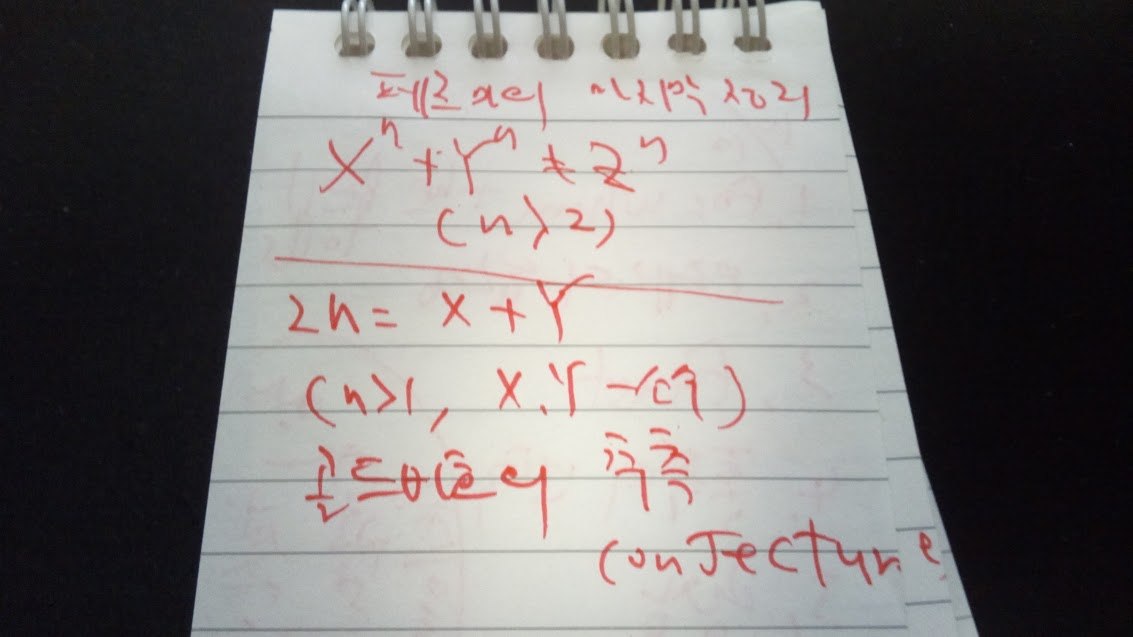 페르마의 마지막 정리
Xⁿ + Yⁿ ≠ Zⁿ
(n > 2)
2n = X + Y
(n>1, X, Y 소수)
골드바흐의 추측
conjecture